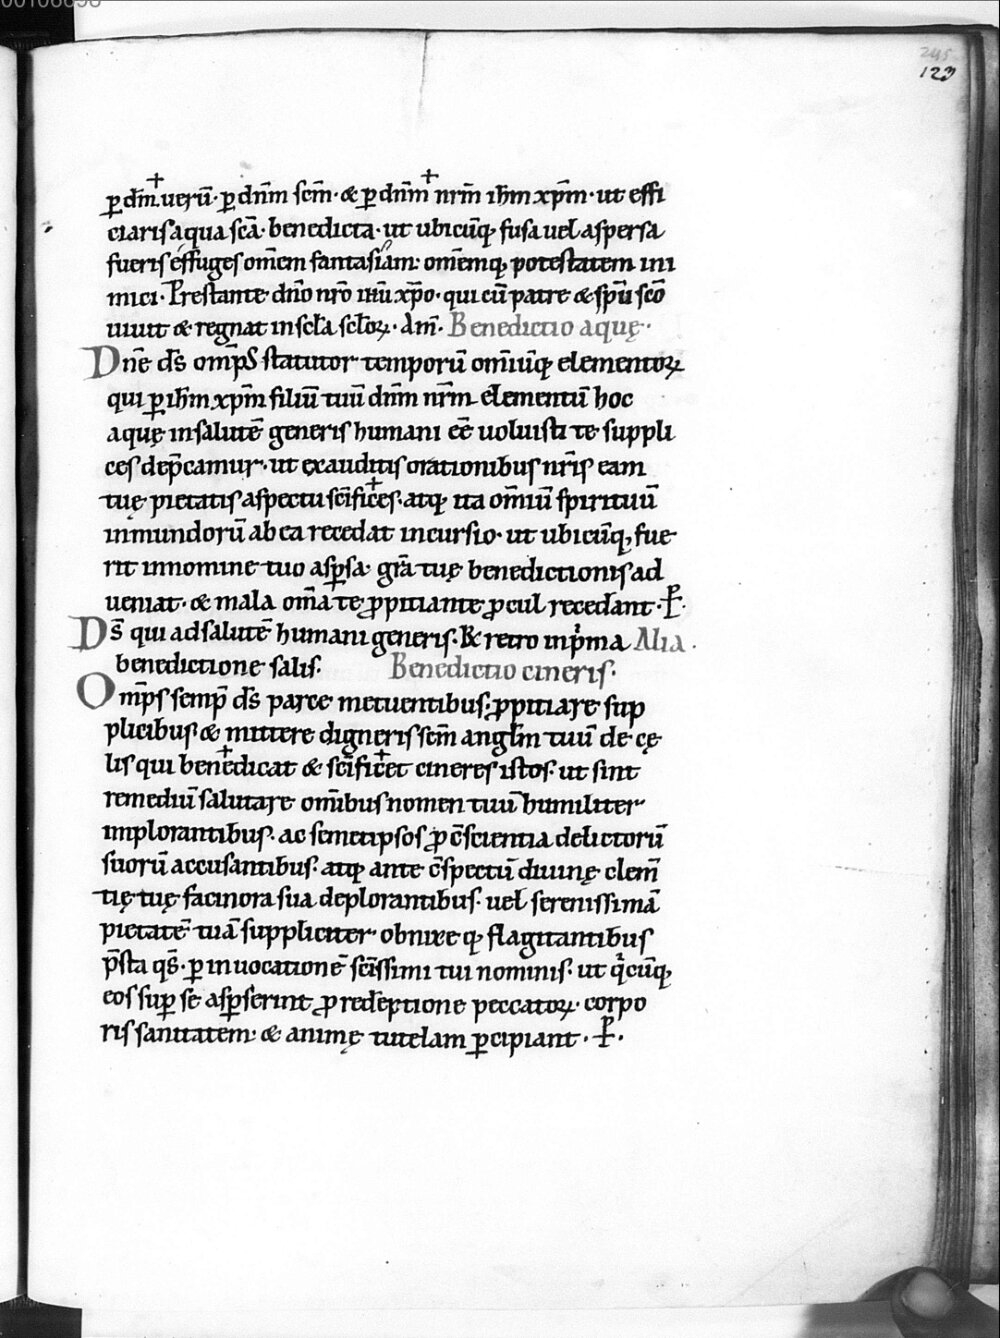 00106698
245
123
ꝑ dm̅ ✝ ueru̅ · ꝑ dnm̅ scm̅ · & ꝑ dnm̅ ✝ nrm̅ ihm̅ xpm̅ · ut effi
ciaris aqua sca̅ · benedicta · ut ubicu̅q; fusa uel aspersa
fueris effuges ome̅m fantasiam · ome̅mq; potestatem ini
mici · Prestante dno̅ nro̅ ihu̅ xpo̅ · qui cu̅ patre & spu̅ sco̅
uiuit & regnat in scl̅a scl̅oꝝ · Am̅ · Benedictio aquę ·
Dne̅ ds̅ omp̅s statutor temporu̅ omiu̅q; elementoꝝ
qui ꝑ ihm̅ xpm̅ filiu̅ tuu̅ dnm̅ nrm̅ elementu̅ hoc
aquę in salute̅ generis humani ee̅ uoluisti te suppli
ces dep̅camur · ut exauditis orationibus nris̅ eam
tuę pietatis aspectu sci̅fi✝ces · atq; ita omiu̅ spirituu̅
inmundoru̅ ab ea recedat incursio · ut ubicu̅q; fue
rit in nomine tuo asꝑsa · gra̅ tuę benedictionis ad
ueniat · & mala oma̅ te ꝓpitiante ꝓcul recedant · P̶ ·
Ds̅ qui ad salute̅ humani generis · R& retro in p̍ma Alia ·
benedictione salis · Benedictio cineris ·
Omp̅s semp̅ ds̅ parce metuentibus · ꝓpitiare sup
plicibus & mittere digneris scm̅ anglm̅ tuu̅ de cę
lis qui bene✝dicat & sci̅fi✝cet cineres istos · ut sint
remediu̅ salutare omi̅bus nomen tuu̅ humiliter
implorantibus · ac semetipsos ꝓ c̅scientia delictoru̅
suoru̅ accusantibus · atq; ante c̅spectu̅ diuinę clem̅
tię tuę facinora sua deplorantibus · uel serenissima̅
pietate̅ tua̅ suppliciter obnixe q; flagitantibus
p̅sta qs̅ · ꝑ inuocatione̅ sci̅ssimi tui nominis · ut q̍cu̅q;
eos suꝑ se asꝑserint ꝓ rede̅ptione peccatoꝝ · corpo
ris sanitatem · & animę tutelam ꝑcipiant · P̶ ·